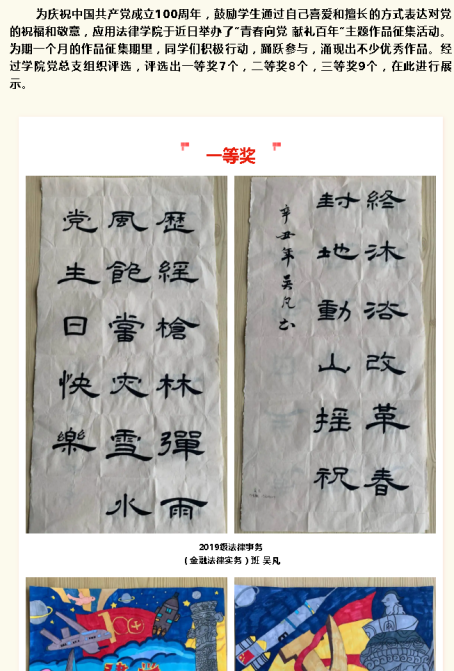 为庆祝中国共产党成立100周年，鼓励学生通过自己喜爱和擅长的方式表达对党
的祝福和敬意，应用法律学院于近日举办了“青春向党 献礼百年”主题作品征集活动。
为期一个月的作品征集期里，同学们积极行动，踊跃参与，涌现出不少优秀作品。经
过学院党总支组织评选，评选出一等奖7个，二等奖8个，三等奖9个，在此进行展
示。
一等奖
歷經槍林彈雨
風飽當灾雪水
党生日快樂
終沐浴改革春
封地動山摇祝
辛丑年吴凡书
2019级法律事务
（金融法律实务）班 吴凡